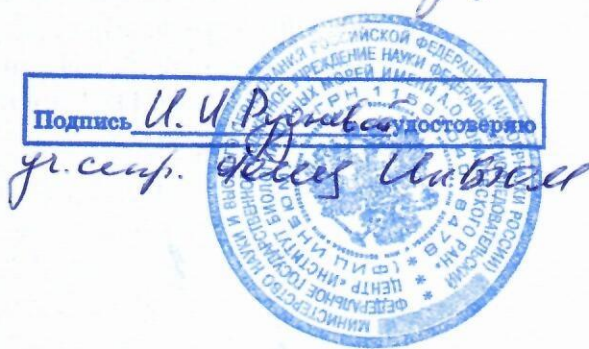 Подпись И. И Рудневой удостоверяю
уч. секр. ФИЦ ИнБЮМ
МИНИСТЕРСТВО НАУКИ И ВЫСШЕГО ОБРАЗОВАНИЯ РОССИЙСКОЙ ФЕДЕРАЦИИ (МИНОБРНАУКИ РОССИИ)
ФЕДЕРАЛЬНОЕ ГОСУДАРСТВЕННОЕ УЧРЕЖДЕНИЕ НАУКИ ФЕДЕРАЛЬНЫЙ ИССЛЕДОВАТЕЛЬСКИЙ
ЦЕНТР «ИНСТИТУТ БИОЛОГИИ ЮЖНЫХ МОРЕЙ ИМЕНИ А.О. КОВАЛЕВСКОГО РАН»
(ФИЦ ИНБЮМ) ОГРН